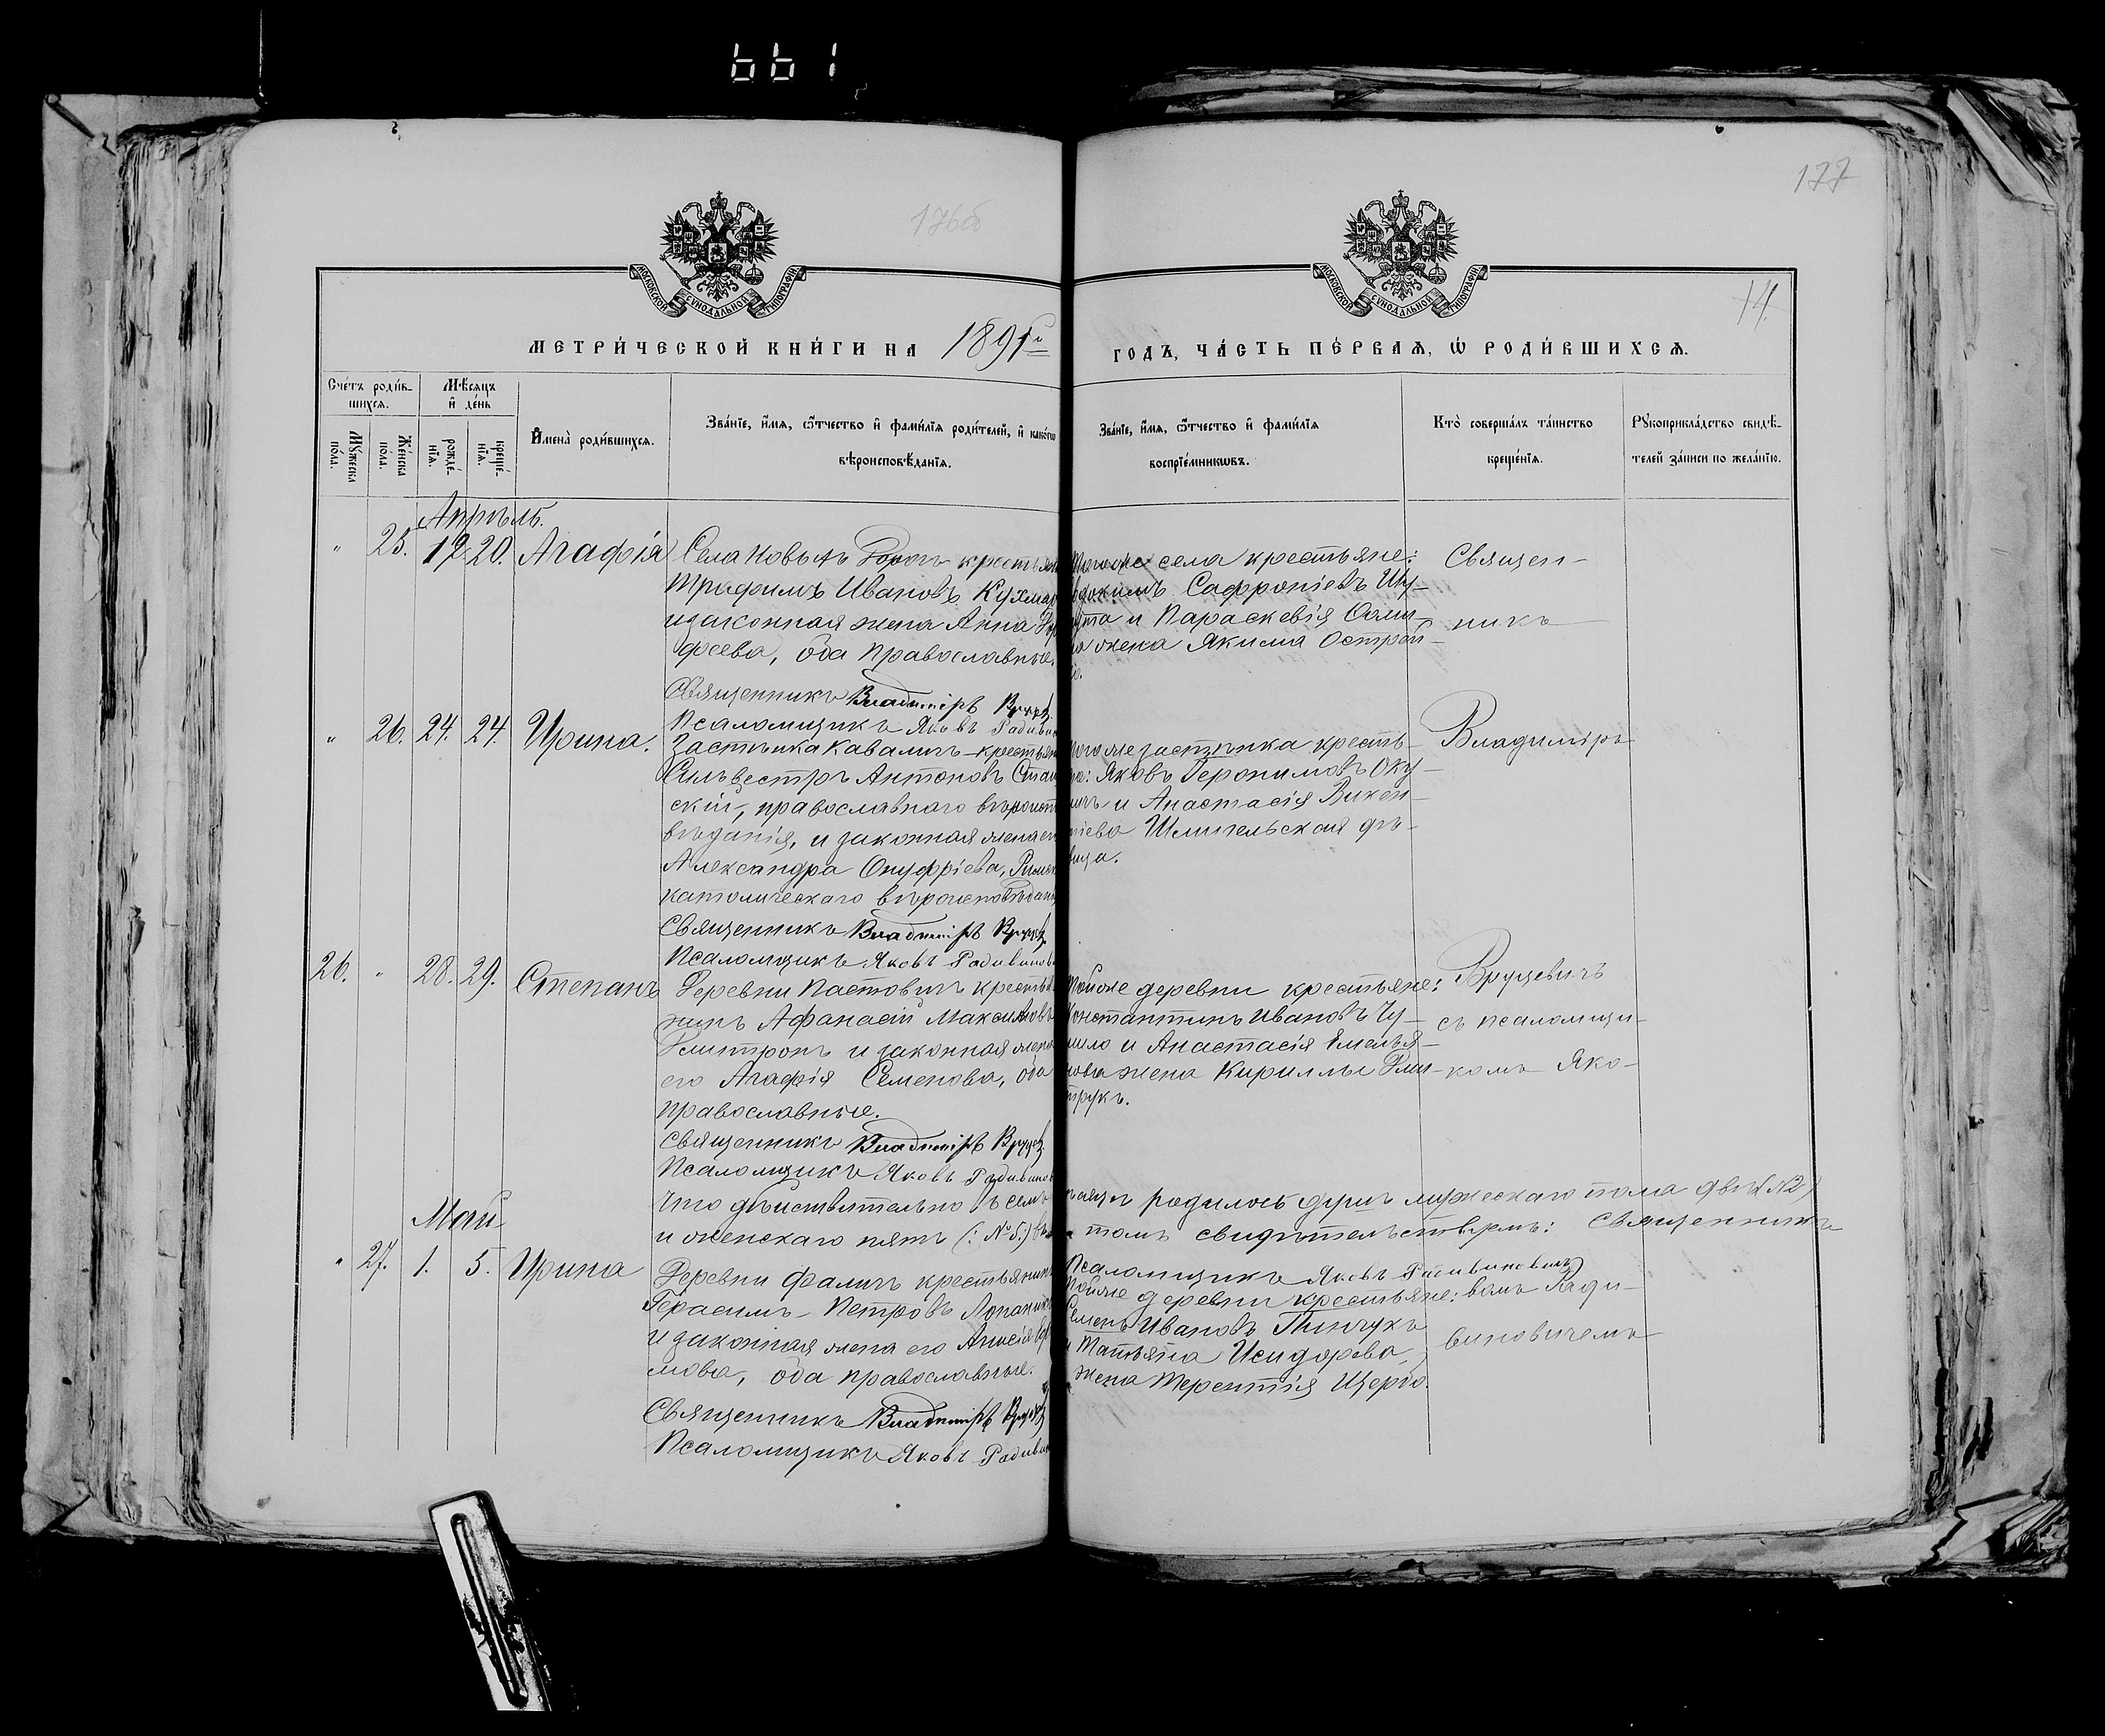 661
177
176об
14.
МОСКОВСКОЙ СѴНОДАЛЬНОЙ ТИПОГРАФІИ
МОСКОВСКОЙ СѴНОДАЛЬНОЙ ТИПОГРАФІИ
МЕТРИ́ЧЕСКОЙ КНИ́ГИ НА 1891й
ГОДЪ, ЧА́СТЬ ПЕ́РВАЯ, Ѡ РОДИ́ВШИХСЯ.
Сче́тъ роди́в-
шихся.
Мѣ́сяцъ
и҆ де́нь
Мꙋ́жеска
по́ла.
Же́нска
по́ла.
рожде́-
нїя.
креще́-
нїя.
И҆мена̀ роди́вшихся.
Зва́нїе, и҆́мя, ѻ҆́тчество и҆ фами́лїя роди́телей, и҆ како́гѡ
вѣроисповѣ́данїя.
Зва́нїе, и҆́мя, ѻ҆́тчество и҆ фами́лїя
воспрїе́мникѡвъ.
Кто̀ соверша́лъ та́инство
креще́нїя.
Рꙋкоприкла́дство свидѣ́-
телей за́писи по жела́нїю.
Апрѣль.
" 25. 19. 20. Агафія
Села Новыхъ Дорогъ крестьян
Трафимъ Ивановъ Кухмар
и законная жена Анна
феева, оба православные.
Священникъ Владиміръ
Псаломщикъ Яковъ Радивин
тогоже села крестьяне:
Сафроніевъ
и Параскевія
жена Якима Острей-
Священ-
никъ
" 26. 24. 24. Ирина.
Застѣнка Каваличъ крестьян
Сильвестръ Антоновъ
скій, православнаго вѣроисп
вѣданія, и законная жена ег
Александра Онуфріева, Римск
католическаго вѣроисповѣдан
Священникъ Владиміръ
Псаломщикъ Яковъ Радивинов
тогоже застѣнка кресть-
не: Яковъ Іеронимовъ Оку-
личъ и Анастасія Викен-
тіева Шмигельская дѣ-
вица.
Владиміръ
26. " 28. 29. Степанъ
Деревни Пастовичъ крестья
нинъ Афанасій Максимовъ
Дмитронъ и законная жена
его Агафія Семенова, оба
православные.
Священникъ Владиміръ
Псаломщикъ Яковъ Радивинов
тойже деревни крестьяне:
Константинъ Ивановъ Чу-
мило и Анастасія Емелья-
нова жена Кириллы Дми-
трукъ.
Вруцевичъ
съ псаломщи-
комъ Яко-
Что дѣйствительно въ семъ мѣсяцѣ родилось душъ мужескаго пола двѣ (№2)
и женскаго пять (: №5.) въ томъ свидѣтельствуемъ: Священникъ
Псаломщикъ Яковъ Радивиновичъ
Май
" 27. 1. 5. Ирина
Деревни Фаличъ крестьянинъ
Герасимъ Петровъ
и законная жена его Анисія
мова, оба православные.
Священникъ Владиміръ
Псаломщикъ Яковъ Радивин
тойже деревни крестьяне:
Семенъ Ивановъ Пинчукъ
и Татьяна Исидорова,
жена Терентія Щерба.
вомъ Ради-
виновичемъ